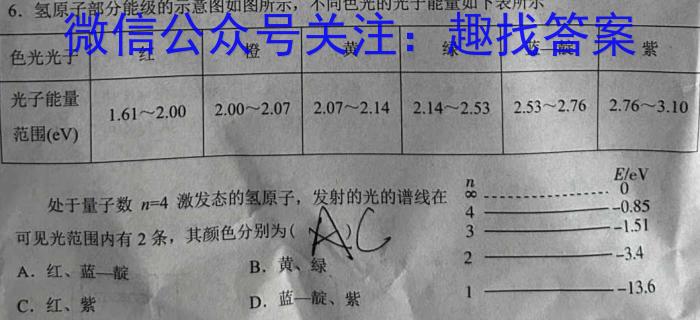 6. 氢原子部分能级的示意图如图所示，不同色光的光子能量如下表所示
微信公众号关注：趣找答案
色光光子 红 橙 黄 绿 蓝—靛 紫
光子能量范围(eV) 1.61～2.00 2.00～2.07 2.07～2.14 2.14～2.53 2.53～2.76 2.76～3.10
处于量子数 n=4 激发态的氢原子，发射的光的谱线在
可见光范围内有 2 条，其颜色分别为( AC )
A. 红、蓝—靛 B. 黄、绿
C. 红、紫 D. 蓝—靛、紫
n E/eV
∞ 0
4 -0.85
3 -1.51
2 -3.4
1 -13.6